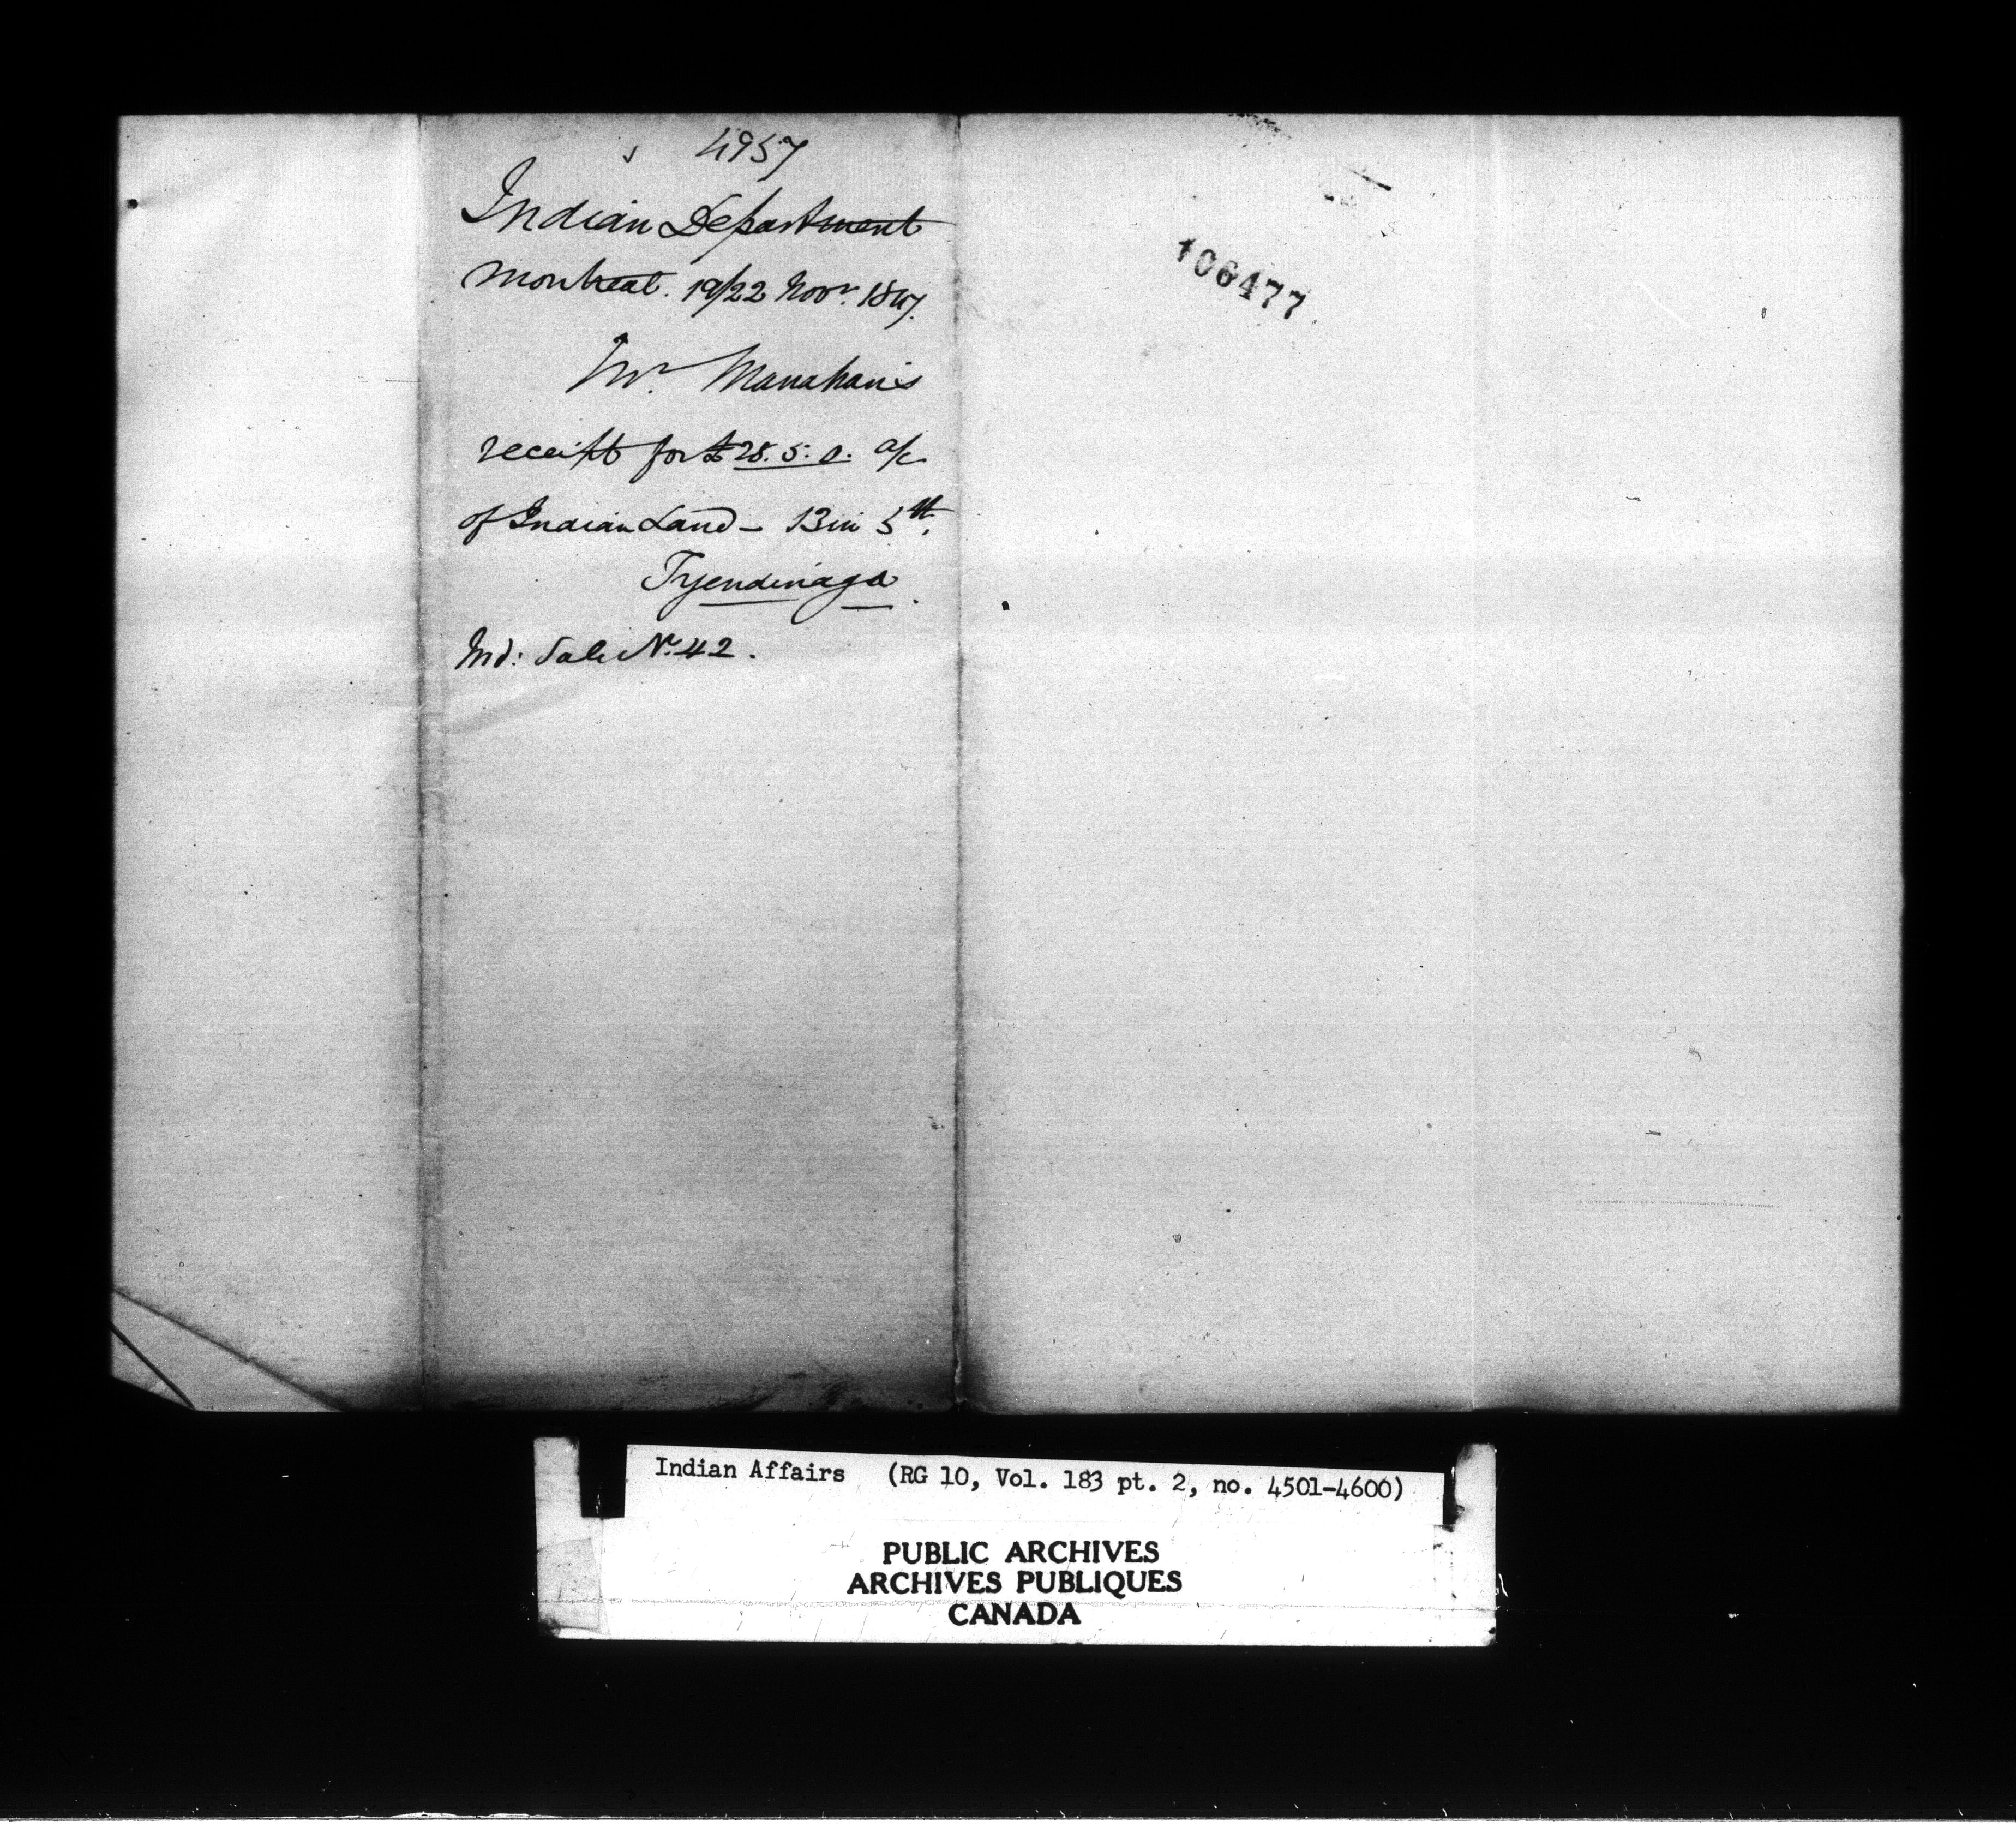 4957
Indian Department
Montreal. 19/22 Novr. 1847.
Mr. Manahan's
receipt for £28. 5. 0. a/c
of Indian Land - 13 in 5th.
Tyendinaga.
Ind: Sale No. 42.
106477.
Indian Affairs (RG 10, Vol. 183 pt. 2, no. 4501-4600)
PUBLIC ARCHIVES
ARCHIVES PUBLIQUES
CANADA